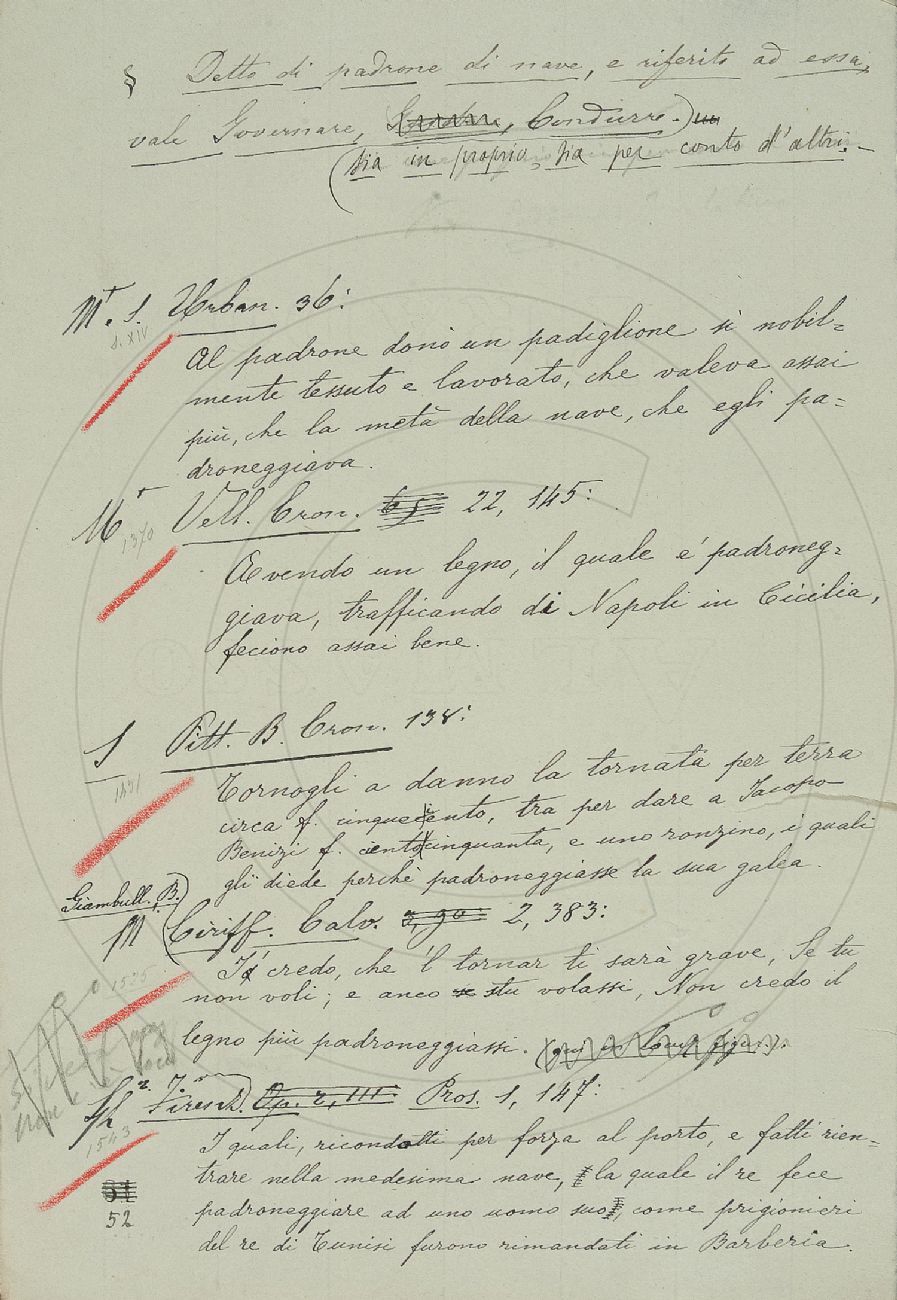 § Detto di padrone di nave, e riferito ad essa,
vale Governare, Condurre.
(sia in proprio, sia per conto d'altri.-
Mt. S. Urban. 36:
S. XIV
Al padrone donò un padiglione sì nobil=
mente tessuto e lavorato, che valeva assai
più, che la metà della nave, che egli pa=
droneggiava.
Mt Vell. Cron. 22, 145:
1370
Avendo un legno, il quale e' padroneg=
giava, trafficando di Napoli in Cicilia,
feciono assai bene.
S Pitt. B. Cron. 138:
Tornogli a danno la tornata per terra
circa f. cinquecento, tra per dare a Jacopo
Benizi f. centocinquanta, e uno ronzino, i quali
gli diede perchè padroneggiasse la sua galea.
Giambull. B.
M (Ciriff. Calv. 3, 90 2, 383:
1535
I' credo, che 'l tornar ti sarà grave, Se tu
non voli; e anco se stu volassi, Non credo il
legno più padroneggiassi. (qui in Com. figur.).
Firenz. Op. 2, 111: Pros. 1, 147:
1543
I quali, ricondotti per forza al porto, e fatti rien=
trare nella medesima nave, la quale il re fece
padroneggiare ad uno uomo suo, come prigionieri
51
52
del re di Tunisi furono rimandati in Barberia.